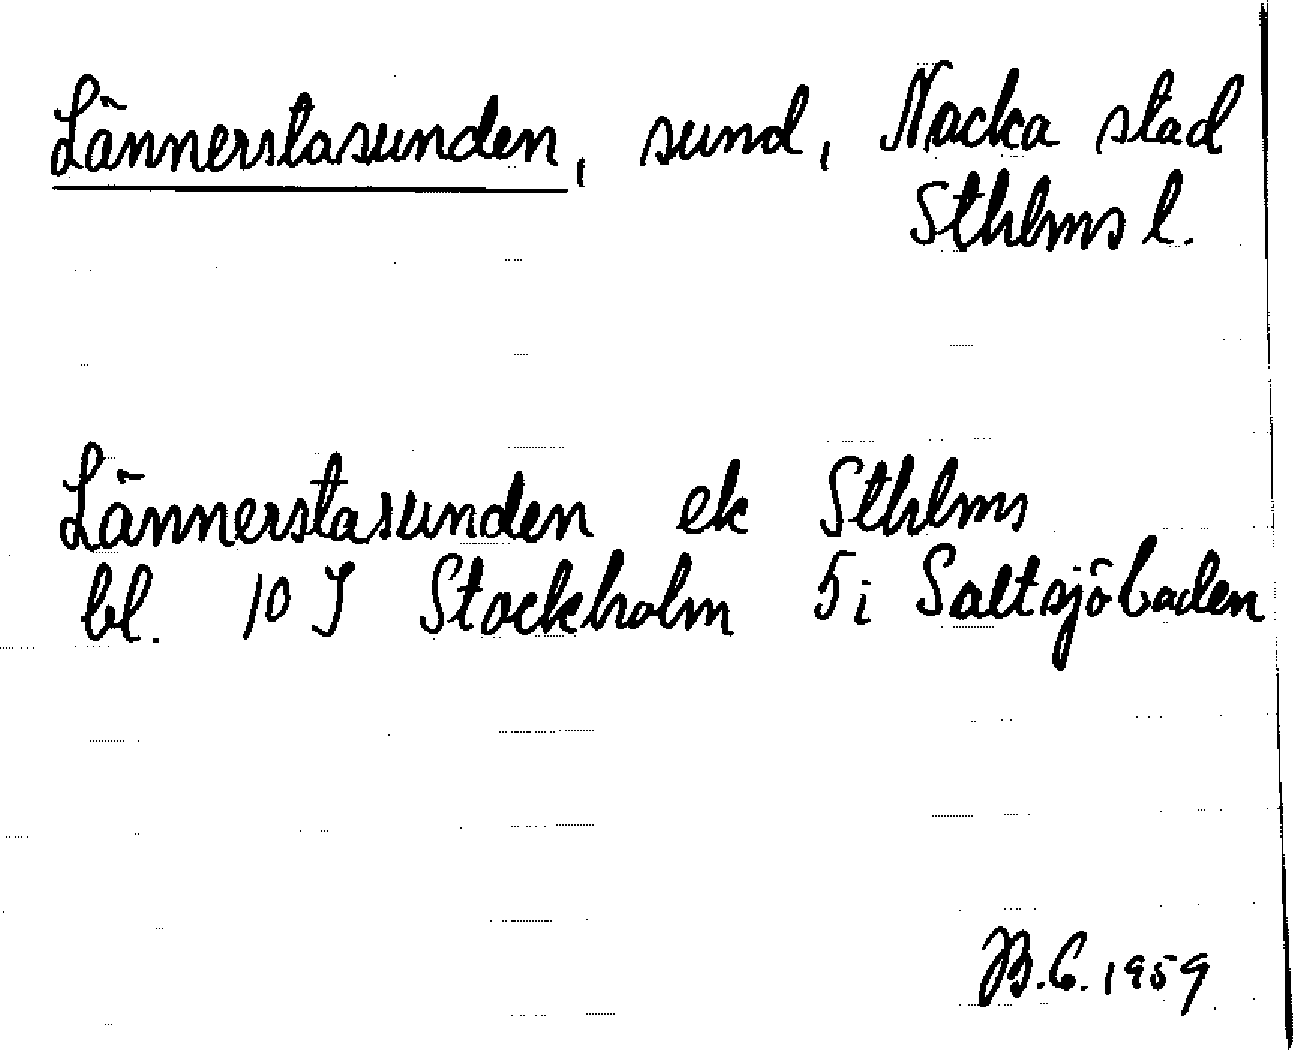 Lännerstasunden, sund, Nacka stad
Sthlms l.
Lännerstasunden ek Sthlms
bl. 10 J Stockholm 5 i Saltsjöbaden
B.C. 1959